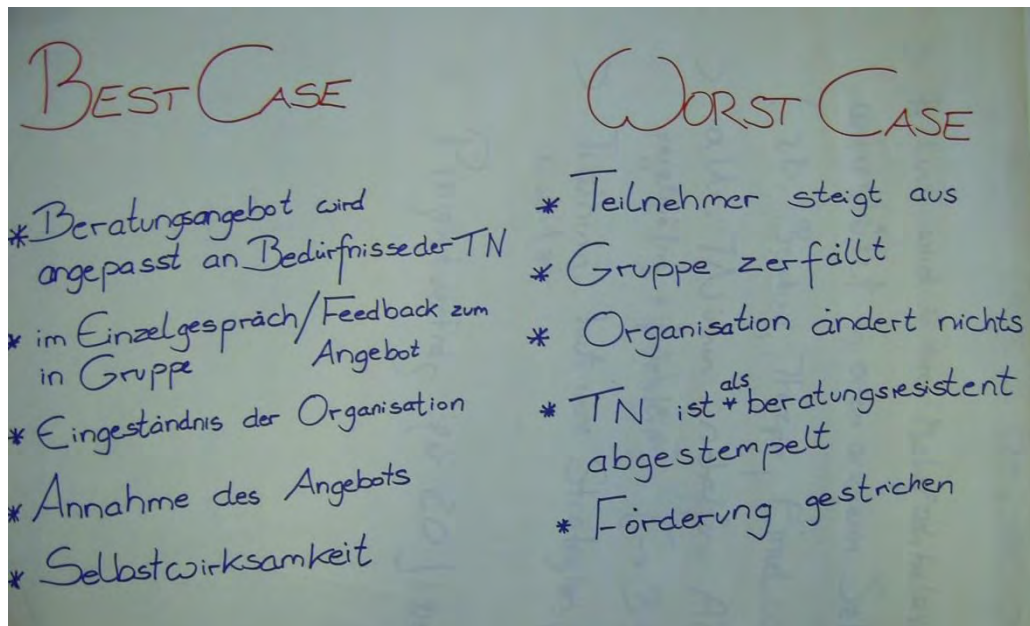 BEST CASE
* Beratungsangebot wird
angepasst an Bedürfnisse der TN
* im Einzelgespräch/Feedback zum
in Gruppe Angebot
* Eingeständnis der Organisation
* Annahme des Angebots
* Selbstwirksamkeit
WORST CASE
* Teilnehmer steigt aus
* Gruppe zerfällt
* Organisation ändert nichts
* TN ist als beratungsresistent
abgestempelt
* Förderung gestrichen